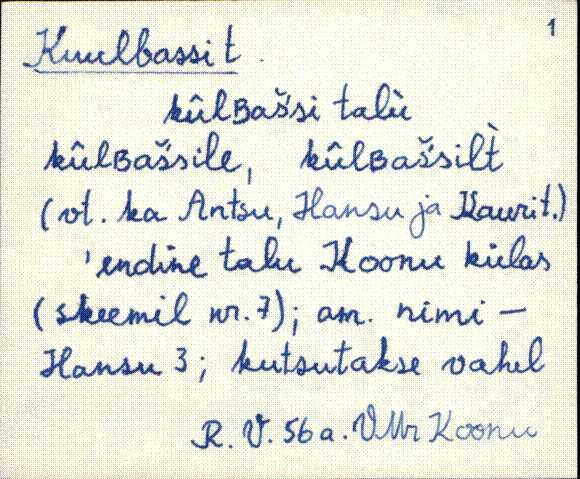 1
Kuulbassit.
kûlʙaš́si talù
kûlʙaš́sile, kûlʙaš́silt̀
(vt. ka Antsu, Hansu ja Kaurit.)
'endine talu Koonu külas
(skeemil nr. 7); am. nimi –
Hansu 3; kutsutakse vahel
R. V. 56 a. VMr Koonu